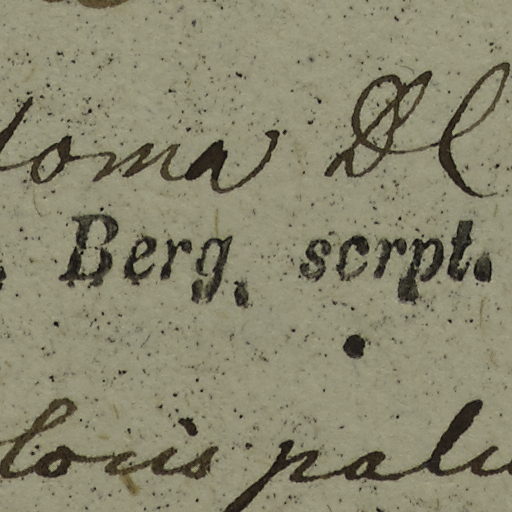 toma DC
Berg, scrpt.
loris palu